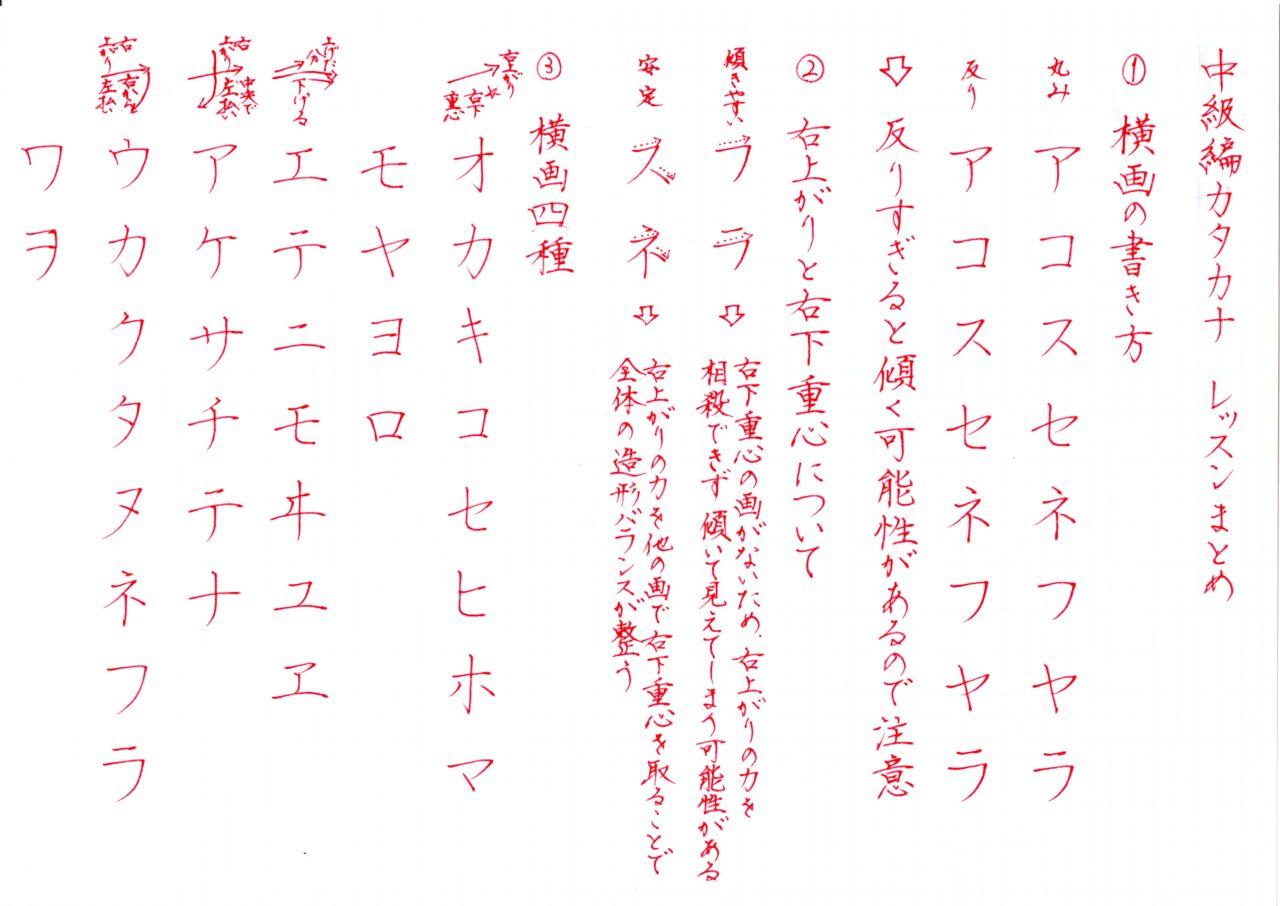 中級編カタカナ レッスンまとめ
① 横画の書き方
丸み アコスセネフヤラ
反り アコスセネフヤラ
⇩ 反りすぎると傾く可能性があるので注意
② 右上がりと右下重心について
傾きやすい フラ ⇩ 右下重心の画がないため、右上がりの力を
相殺できず傾いて見えてしまう可能性がある
安定 スネ ⇩ 右上がりの力を他の画で右下重心を取ることで
全体の造形バランスが整う
③ 横画四種
右上がり
右下
重心
オカキコセヒホマ
モヤヨロ
上げた
分
下げる
エテニモヰユヱ
右
上がり
中央で
左払い
アケサチテナ
右
上がり
右から
左払い
ウカクタヌネフラ
ワヲ